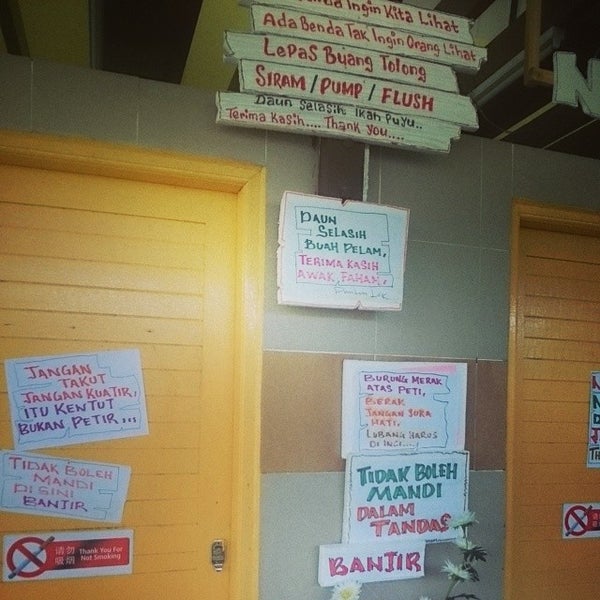 Ingin Kita Lihat
Ada Benda Tak Ingin Orang Lihat
Lepas Buang Tolong
SIRAM / PUMP / FLUSH
Daun Selasih Ikan Puyu..
Terima Kasih.... Thank you....
DAUN
SELASIH
BUAH PELAM,
TERIMA KASIH
AWAK FAHAM.
JANGAN
TAKUT
JANGAN KUATIR,
ITU KENTUT
BUKAN PETIR...
TIDAK BOLEH
MANDI
DI SINI
BANJIR
请勿
吸烟
Thank You For
Not Smoking
BURUNG MERAK
ATAS PETI,
BERAK
JANGAN SUKA
HATI,
LUBANG HARUS
TIDAK BOLEH
MANDI
DALAM
TANDAS
BANJIR
N